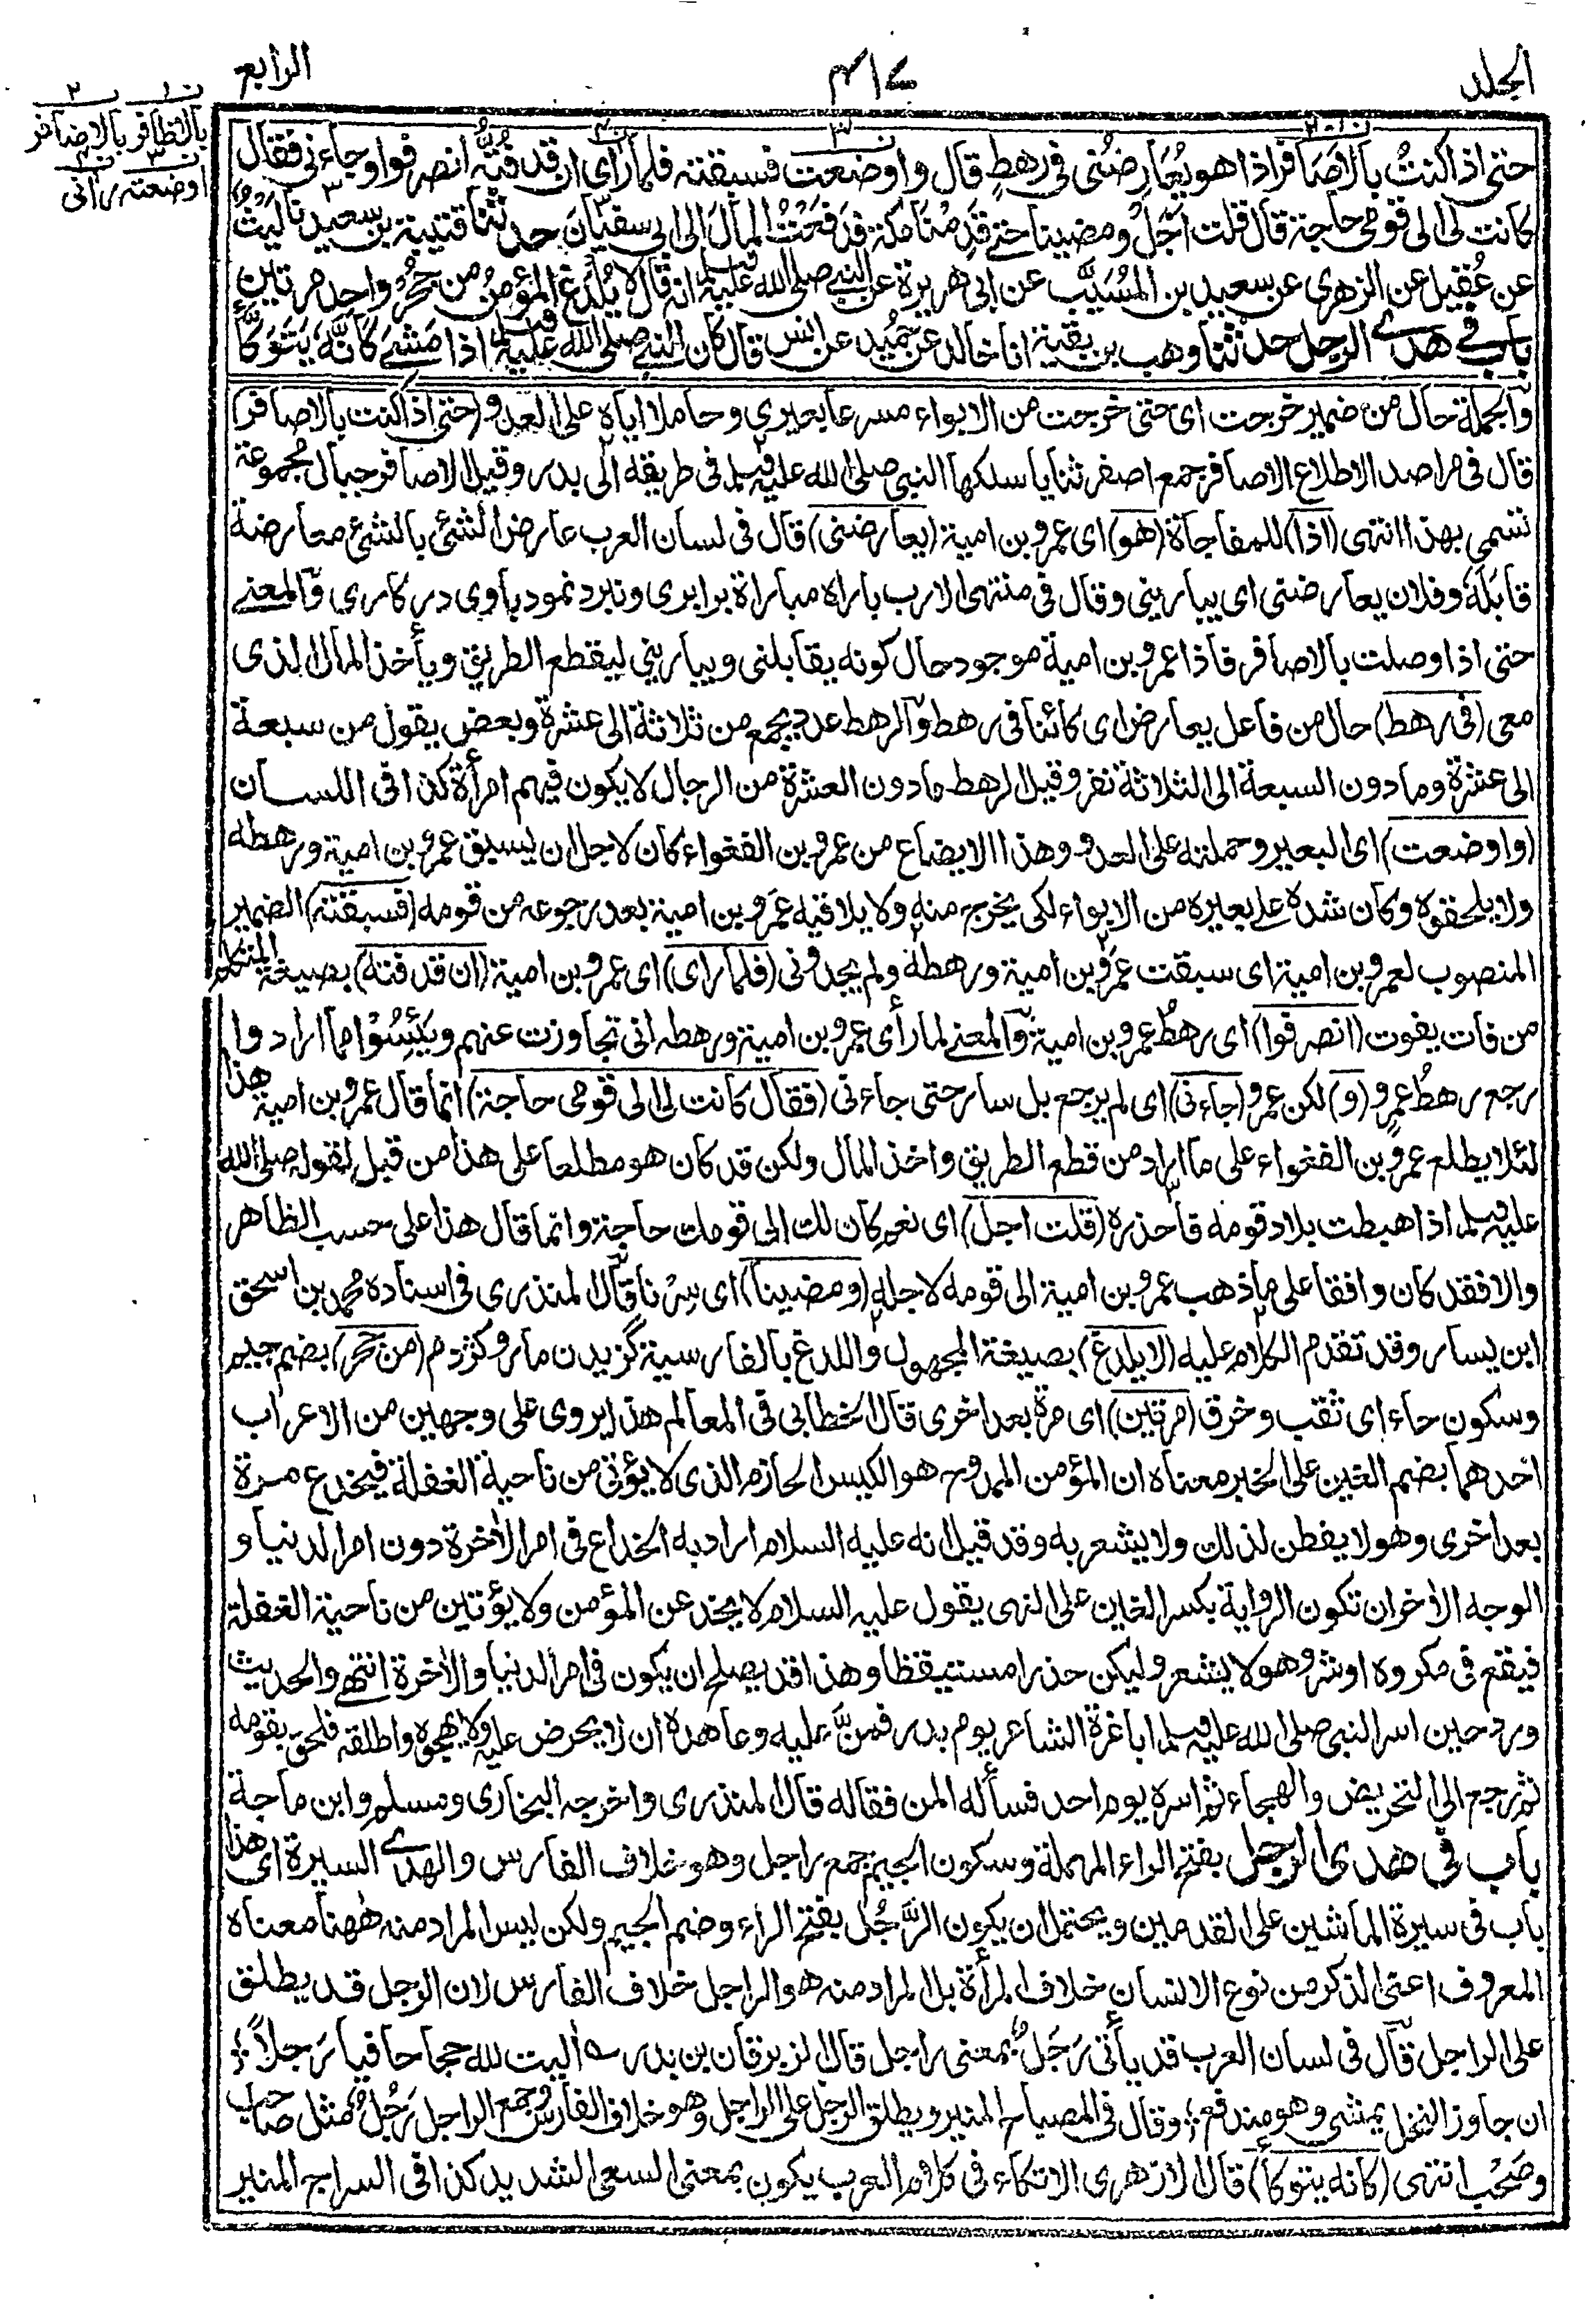 الجلد
٤١٧
الرابع
بالظافر بالاضافر
اوضعته رآنى
حتى اذا كنتُ بالاَصَافر اذا هو يُعارِضُنى فى رهطٍ قال واوضعت فسبقته فلما رأى ان قد فُتُّه انصرفوا وجاءنى فقال
كانت لى الى قومى حاجة قال قلت اَجَلْ ومضينا حتى قَدِمْنَا مكة فدَفَعْتُ المال الى ابى سفيان حدثنا قتيبة بن سعيد نا ليثٌ
عن عُقيل عن الزهرى عن سعيد بن المُسَيَّب عن ابى هريرة عن النبى صلى الله عليه وسلم انه قال لا يُلدَغُ المؤمنُ من جُحْرٍ واحد مرتين
باب فى هدى الرجل حدثنا وهب بن بقية انا خالد عن حُمَيد عن انس قال كان النبى صلى الله عليه وسلم اذا مَشٰى كَاَنَّهُ يَتَوَكَّأُ
والجملة حال من ضمير خرجت اى حتى خرجت من الابواء مسرعا بعيرى وحاملا اياه على العدو (حتى اذا كنت بالاصافر)
قال فى مراصد الاطلاع الاصافر جمع اصفر ثنايا سلكها النبى صلى الله عليه وسلم فى طريقه الى بدر وقيل الاصافر جبال مجموعة
تسمى بهذا انتهى (اذا) للمفاجأة (هو) اى عمرو بن امية (يعارضنى) قال فى لسان العرب عارض الشئ بالشئ معارضة
قابَلَه وفلان يعارضنى اى يبارينى وقال فى منتهى الارب باراه مباراة برابرى ونبرد نمود باوى در كارى والمعنى
حتى اذا وصلت بالاصافر فاذا عمرو بن امية موجود حال كونه يقابلنى ويبارينى ليقطع الطريق ويأخذ المال الذى
معى (فى رهط) حال من فاعل يعارض اى كائنا فى رهط والرهط عدد يجمع من ثلاثة الى عشرة وبعض يقول من سبعة
الى عشرة وما دون السبعة الى الثلاثة نفر وقيل الرهط ما دون العشرة من الرجال لا يكون فيهم امرأة كذا فى اللسان
(واوضعت) اى البعير وحملته على العدو وهذا الايضاع من عمرو بن الفغواء كان لاجل ان يسبق عمرو بن امية ورهطه
ولا يلحقوه وكان شده على بعيره من الابواء لكى يخرج منه ولا يلاقيه عمرو بن امية بعد رجوعه من قومه (فسبقته) الضمير
المنصوب لعمرو بن امية اى سبقت عمرو بن امية ورهطه ولم يجدونى (فلما راى) اى عمرو بن امية (ان قد فته) بصيغة المتكلم
من فات يفوت (انصرفوا) اى رهطُ عمرو بن امية والمعنى لما رأى عمرو بن امية ورهطه انى تجاوزت عنهم ويَئِسُوْا مما ارادوا
رجع رهطُ عمرٍو (و) لكن عمرو (جاءنى) اى لم يرجع بل سار حتى جاءنى (فقال كانت لى الى قومى حاجة) انما قال عمرو بن امية هذا
لئلا يطلع عمرو بن الفغواء على ما اراد من قطع الطريق واخذ المال ولكن قد كان هو مطلعا على هذا من قبل لقوله صلى الله
عليه وسلم اذا هبطت بلاد قومه فاحذره (قلت اجل) اى نعم كان لك الى قومك حاجة وانما قال هذا على حسب الظاهر
والا فقد كان واقفا على ما ذهب عمرو بن امية الى قومه لاجله (ومضينا) اى سِرْنا قال المنذرى فى اسناده محمد بن اسحق
ابن يسار وقد تقدم الكلام عليه (لا يلدغ) بصيغة المجهول واللدغ بالفارسية گزيدن مار وكژدم (من جحر) بضم جيم
وسكون حاء اى ثقب وخرق (مرتين) اى مرة بعد اخرى قال الخطابى فى المعالم هذا يروى على وجهين من الاعراب
احدهما بضم الغين على الخبر معناه ان المؤمن الممدوح هو الكيس الحازم الذى لا يؤتى من ناحية الغفلة فيخدع مرة
بعد اخرى وهو لا يفطن لذلك ولا يشعر به وقد قيل انه عليه السلام اراد به الخداع فى امر الاٰخرة دون امر الدنيا و
الوجه الاٰخر ان تكون الرواية بكسر الغين على النهى يقول عليه السلام لا يخدعن المؤمن ولا يؤتين من ناحية الغفلة
فيقع فى مكروه او شر وهو لا يشعر وليكن حذرا مستيقظا وهذا قد يصلح ان يكون فى امر الدنيا والاٰخرة انتهى والحديث
ورد حين اسر النبى صلى الله عليه وسلم ابا غرة الشاعر يوم بدر فمنَّ عليه وعاهده ان لا يحرض عليه ولا يهجوه واطلقه فلحق بقومه
ثم رجع الى التحريض والهجاء ثم اسره يوم احد فسأله المن فقاله قال المنذرى واخرجه البخارى ومسلم وابن ماجة
باب فى هدى الرجل بفتح الراء المهملة وسكون الجيم جمع راجل وهو خلاف الفارس والهدى السيرة اى هذا
باب فى سيرة الماشين على القدمين ويحتمل ان يكون الرَّجُل بفتح الراء وضم الجيم ولكن ليس المراد منه ههنا معناه
المعروف اعنى الذكر من نوع الانسان خلاف المرأة بل المراد منه هو الراجل خلاف الفارس لان الرجل قد يطلق
على الراجل قال فى لسان العرب قد يأتى رَجُلٌ بمعنى راجل قال الزبرقان بن بدر ؎ اٰليت لله حجا حافيا رَجلاً ؛
ان جاوز النخل يمشى وهو مندفع ؛ وقال فى المصباح المنير ويطلق الرجل على الراجل وهو خلاف الفارس وجمع الراجل رَجْلٌ مثل صاحب
وصَحْب انتهى (كانه يتوكأ) قال الازهرى الاتكاء فى كلام العرب يكون بمعنى السعى الشديد كذا فى السراج المنير